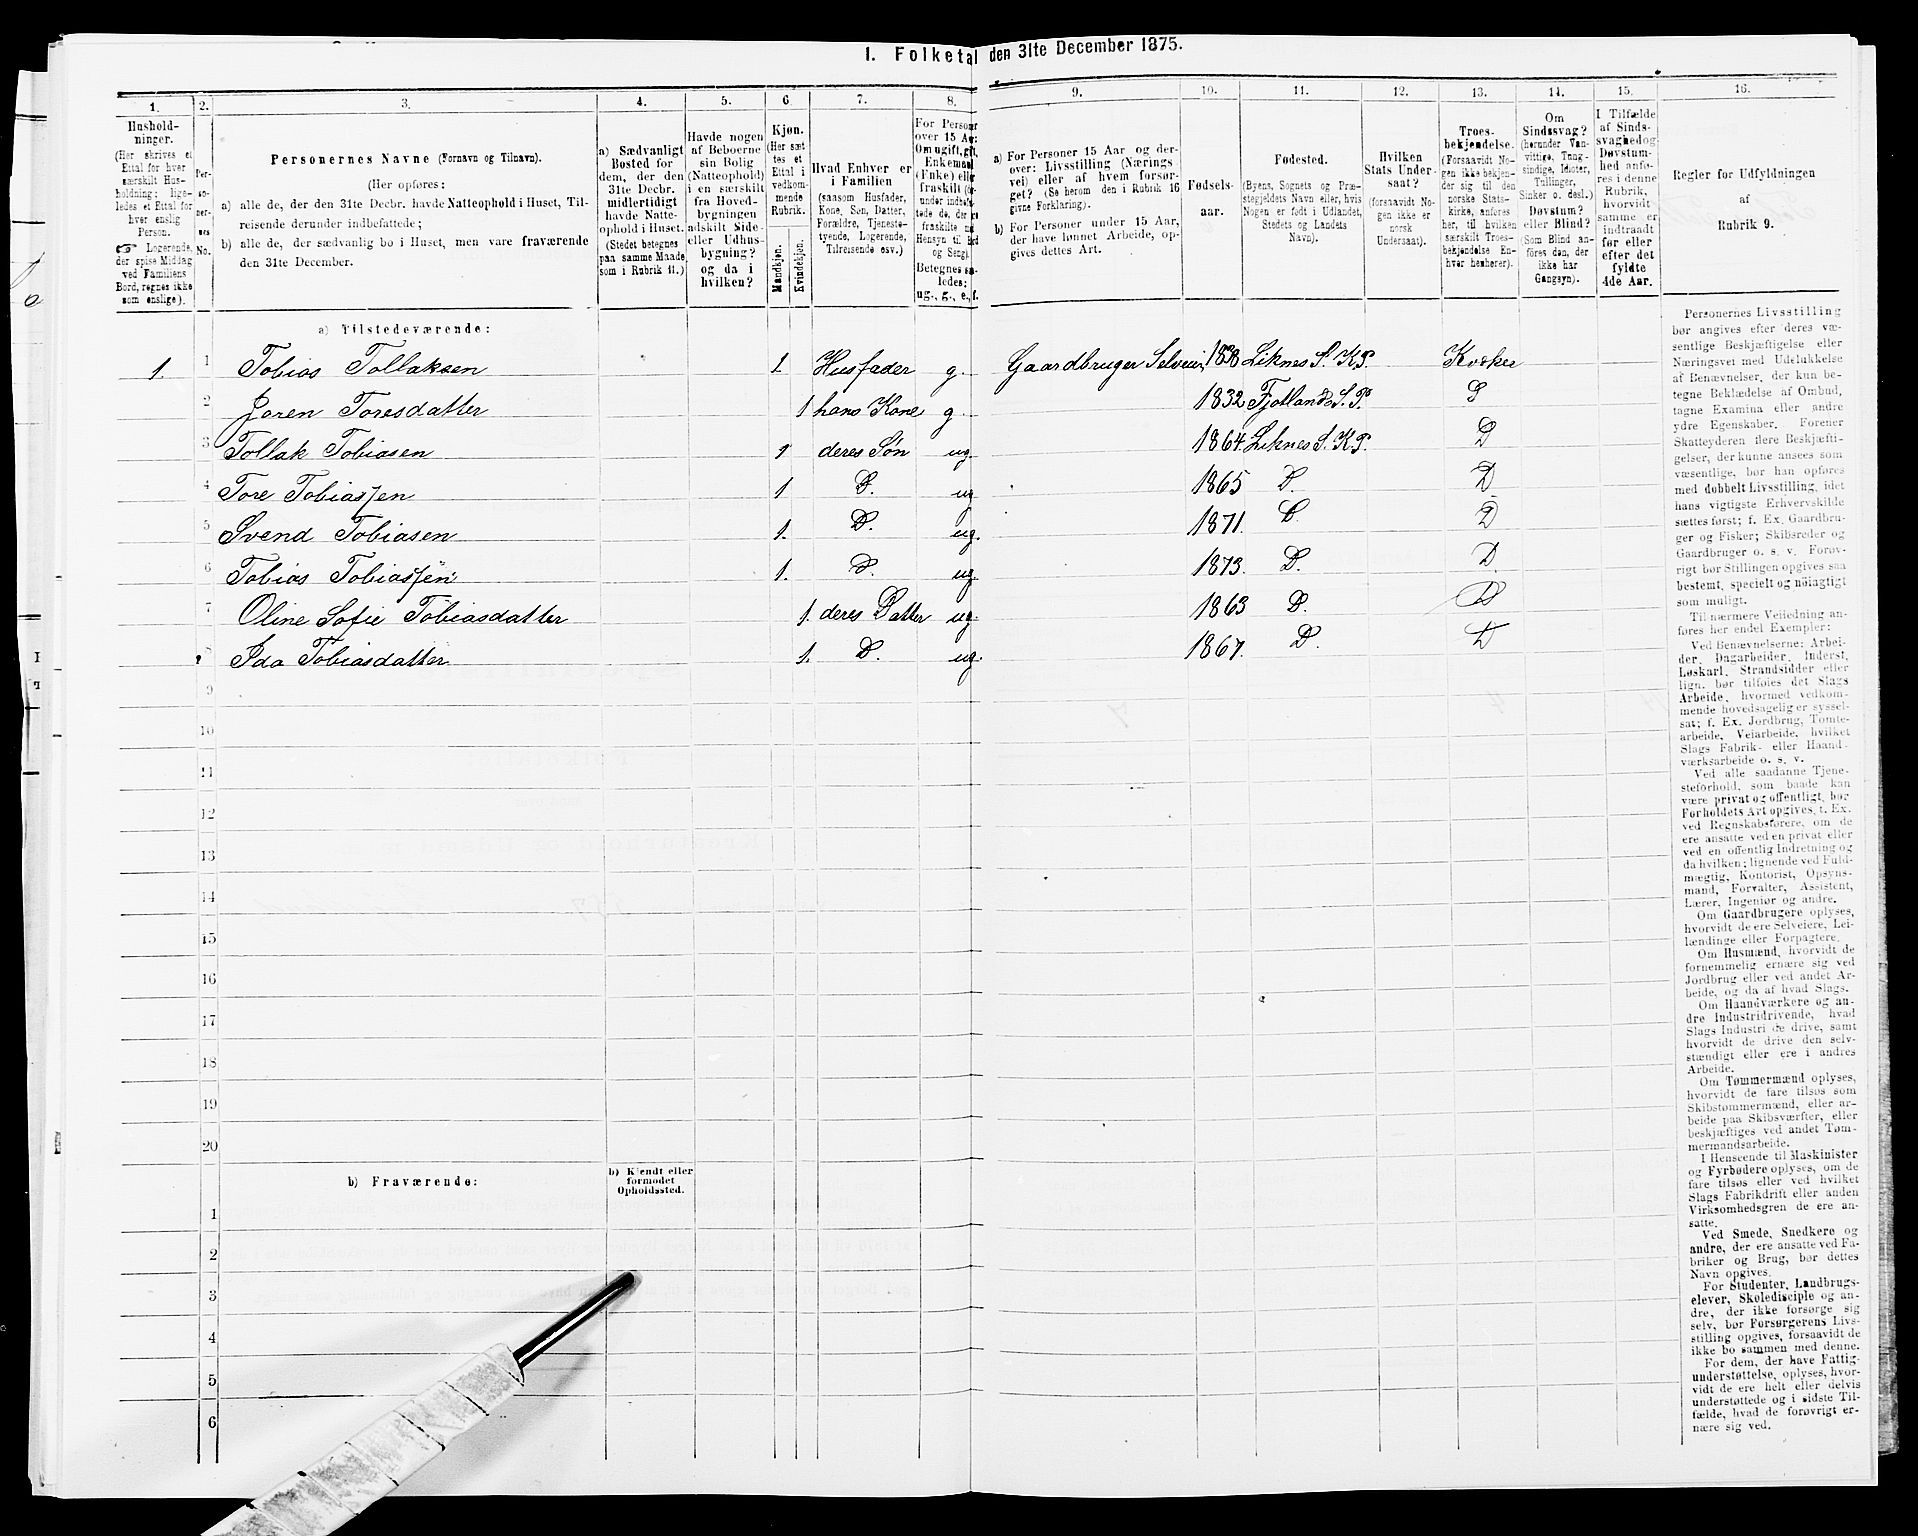 1. Folketal den 31te December 1875.
1. 2. 3. 4. 5. 6. 7. 8. 9. 10. 11. 12. 13. 14. 15. 16.
Hushold-
ninger.
(Her skrives et
Ettal for hver
særskilt Hus-
holdning; lige-
ledes et Ettal for
hver enslig
Person.
☞ Logerende,
der spise Middag
ved Familiens
Bord, regnes ikke
som enslige).
Per-
so-
ner-
nes
No.
Personernes Navne (Fornavn og Tilnavn).
(Her opføres:
a) alle de, der den 31te Decbr. havde Natteophold i Huset, Til-
reisende derunder indbefattede;
b) alle de, der sædvanlig bo i Huset, men vare fraværende
den 31te December.
a) Sædvanligt
Bosted for
dem, der den
31te Decbr.
midlertidigt
havde Natte-
ophold i Huset.
(Stedet betegnes
paa samme Maade
som i Rubrik 11.)
Havde nogen
af Beboerne
sin Bolig
(Natteophold)
i en særskilt
fra Hoved-
bygningen
adskilt Side-
eller Udhus-
bygning?
og da i
hvilken?
Kjøn.
(Her sæt-
tes et
Ettal i
vedkom-
mende
Rubrik.
Mandkjøn.
Kvindekjøn.
Hvad Enhver er
i Familien
(saasom Husfader,
Kone, Søn, Datter,
Forældre, Tjeneste-
tyende, Logerende,
Tilreisende osv.).
For Personer
over 15 Aar:
Om ugift, gift,
Enkemand
(Enke) eller
fraskilt
Betegnes saa-
ledes:
ug., g., e., f.
a) For Personer 15 Aar og der-
over: Livsstilling (Nærings-
vei) eller af hvem forsør-
get? (Se herom den i Rubrik 16
givne Forklaring).
b) For Personer under 15 Aar,
der have lønnet Arbeide, op-
gives dettes Art.
Fødsels-
aar.
Fødested.
(Byens, Sognets og Præ-
stegjeldets Navn, eller, hvis
Nogen er født i Udlandet,
Stedets og Landets
Navn).
Hvilken
Stats Under-
saat?
(forsaavidt No-
gen ikke er
norsk
Undersaat).
Troes-
bekjendelse.
(Forsaavidt No-
gen ikke bekjen-
der sig til den
norske Stats-
kirke, anføres
her, til hvilken
særskilt Troes-
bekjendelse En-
hver henhører).
Om
Sindssvag?
(herunder Van-
vittige, Tung-
sindige, Idioter,
Tullinger,
Sinker o. desl.)
Døvstum?
eller Blind?
(Som Blind an-
føres den, der
ikke har
Gangsyn).
I Tilfælde
af Sinds-
svaghed og
Døvstum-
hed anfø-
res i denne
Rubrik,
hvorvidt
samme er
indtraadt
før eller
efter det
fyldte
4de Aar.
Regler for Udfyldningen
af
Rubrik 9.
a) Tilstedeværende:
1. 1 Tobias Tollaksen 1 Husfader g. Gaardbruger Selveier 1838 Liknes S. K.P. Kvæker
2 Joren Toresdatter 1 hans Kone g. 1832 Fjotlands S. P.
3 Tollak Tobiasen 1 deres Søn ug. 1864. Liknes S. K.P. D
4 Tore Tobiassen 1 D. ug 1865 D. D
5 Svend Tobiasen 1. D. ug. 1871. D
6 Tobias Tobiassen 1. D. ug. 1873. D. D.
7 Oline Sofie Tobiasdatter 1. deres Datter ug. 1863 D. D
8 Ida Tobiasdatter 1. D. ug. 1867. D. D
9
10
11
12
13
14
15
16
17
18
19
20
b) Fraværende:
b) Kjendt eller
formodet
Opholdssted.
1
2
3
4
5
6
Personernes Livsstilling
bør angives efter deres væ-
sentlige Beskjæftigelse eller
Næringsvei med Udelukkelse
af Benævnelser, der kun be-
tegne Beklædelse af Ombud,
tagne Examina eller andre
ydre Egenskaber. Forener
Skatteyderen flere Beskjæfti-
gelser, der kunne ansees som
væsentlige, bør han opføres
med dobbelt Livsstilling, idet
hans vigtigste Erhvervskilde
sættes først; f. Ex. Gaardbru-
ger og Fisker; Skibsreder og
Gaardbruger o. s. v. Forøv-
rigt bør Stillingen opgives saa
bestemt, specielt og nøiagtigt
som muligt.
Til nærmere Veiledning an-
føres her endel Exempler:
Ved Benævnelserne: Arbei-
der, Dagarbeider, Inderst,
Løskarl, Strandsidder eller
lign. bør tilføies det Slags
Arbeide, hvormed vedkom-
mende hovedsagelig er syssel-
sat; f. Ex. Jordbrug, Tomte-
arbeide, Veiarbeide, hvilket
Slags Fabrik- eller Haand-
værksarbeide o. s. v.
Ved alle saadanne Tjene-
steforhold, som baade kan
være privat og offentligt, bør
Forholdets Art opgives, t. Ex.
ved Regnskabsførere, om de
ere ansatte ved en privat eller
ved en offentlig Indretning og
da hvilken; lignende ved Fuld-
mægtig, Kontorist, Opsyns-
mand, Forvalter, Assistent,
Lærer, Ingeniør og andre.
Om Gaardbrugere oplyses,
hvorvidt de ere Selveiere, Lei-
lændinge eller Forpagtere.
Om Husmænd, hvorvidt de
fornemmelig ernære sig ved
Jordbrug eller ved andet Ar-
beide, og da af hvad Slags.
Om Haandværkere og an-
dre Industridrivende, hvad
Slags Industri de drive, samt
hvorvidt de drive den selv-
stændigt eller ere i andres
Arbeide.
Om Tømmermænd oplyses,
hvorvidt de fare tilsøs som
Skibstømmermænd, eller ar-
beide paa Skibsværfter, eller
beskjæftiges ved andet Tøm-
mermandsarbeide.
I Henseende til Maskinister
og Fyrbødere oplyses, om de
fare tilsøs eller ved hvilket
Slags Fabrikdrift eller anden
Virksomhedsgren de ere an-
satte.
Ved Smede, Snedkere og
andre, der ere ansatte ved Fa-
briker og Brug, bør dettes
Navn opgives.
For Studenter, Landbrugs-
elever, Skoledisciple og an-
dre, der ikke forsørge sig
selv, bør Forsørgerens Livs-
stilling opgives, forsaavidt de
ikke bo sammen med denne.
For dem, der have Fattig-
understøttelse, oplyses, hvor-
vidt de ere helt eller delvis
understøttede og i sidste Til-
fælde, hvad de forøvrigt er-
nære sig ved.